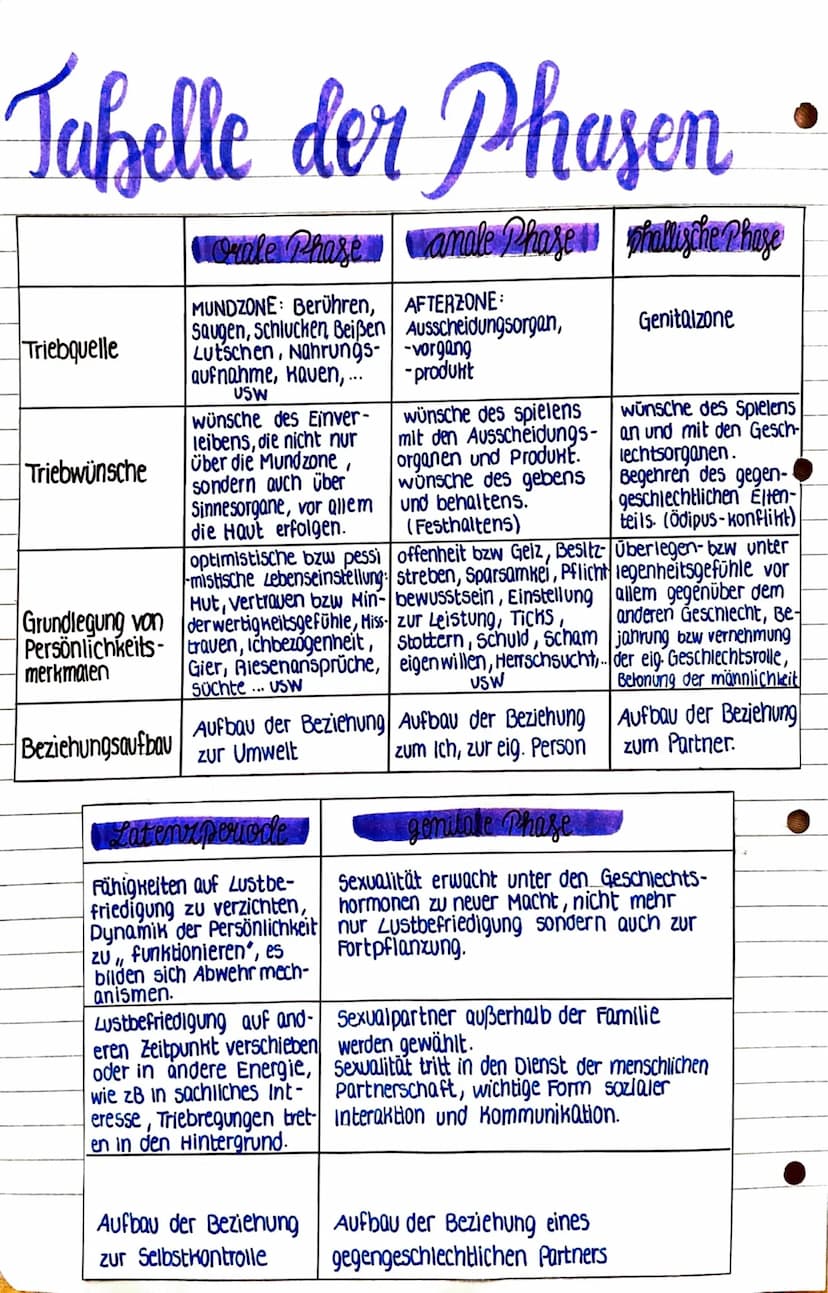 Tabelle der Phasen
orale Phase
anale Phase
phallische Phase
Triebquelle
MUNDZONE: Berühren,
saugen, schlucken, Beißen
Lutschen, Nahrungs-
aufnahme, kauen, ...
usw
AFTERZONE:
Ausscheidungsorgan,
-vorgang
-produkt
Genitalzone
Triebwünsche
wünsche des Einver-
leibens, die nicht nur
über die Mundzone,
sondern auch über
Sinnesorgane, vor allem
die Haut erfolgen.
wünsche des spielens
mit den Ausscheidungs-
organen und Produkt.
wünsche des gebens
und behaltens.
(Festhaltens)
wünsche des Spielens
an und mit den Gesch-
lechtsorganen.
Begehren des gegen-
geschlechtlichen Elten-
teils. (Ödipus-konflikt)
Grundlegung von
Persönlichkeits-
merkmalen
optimistische bzw pessi
-mistische Lebenseinstellung:
Mut, Vertrauen bzw Min-
derwertigkeitsgefühle, Miss-
trauen, Ichbezogenheit,
Gier, Riesenansprüche,
süchte ... usw
offenheit bzw Geiz, Besitz-
streben, Sparsamkei, Pflicht
bewusstsein, Einstellung
zur Leistung, Ticks,
stottern, Schuld, Scham
eigenwillen, Herrschsucht,..
usw
Überlegen- bzw unter
legenheitsgefühle vor
allem gegenüber dem
anderen Geschlecht, Be-
jahrung bzw vernehmung
der eig. Geschlechtsrolle,
Betonung der männlichkeit
Beziehungsaufbau
Aufbau der Beziehung
zur Umwelt
Aufbau der Beziehung
zum Ich, zur eig. Person
Aufbau der Beziehung
zum Partner.
Latenzperiode
genitale Phase
Fähigkeiten auf Lustbe-
friedigung zu verzichten,
Dynamik der Persönlichkeit
zu „funktionieren", es
bilden sich Abwehrmech-
anismen.
Sexualität erwacht unter den Geschlechts-
hormonen zu neuer Macht, nicht mehr
nur Lustbefriedigung sondern auch zur
Fortpflanzung.
Lustbefriedigung auf and-
eren Zeitpunkt verschieben
oder in andere Energie,
wie zB in sachliches Int-
eresse, Triebregungen tret-
en in den Hintergrund.
Sexualpartner außerhalb der Familie
werden gewählt.
Sexualität tritt in den Dienst der menschlichen
Partnerschaft, wichtige Form sozialer
Interaktion und Kommunikation.
Aufbau der Beziehung
zur Selbstkontrolle
Aufbau der Beziehung eines
gegengeschlechtlichen Partners